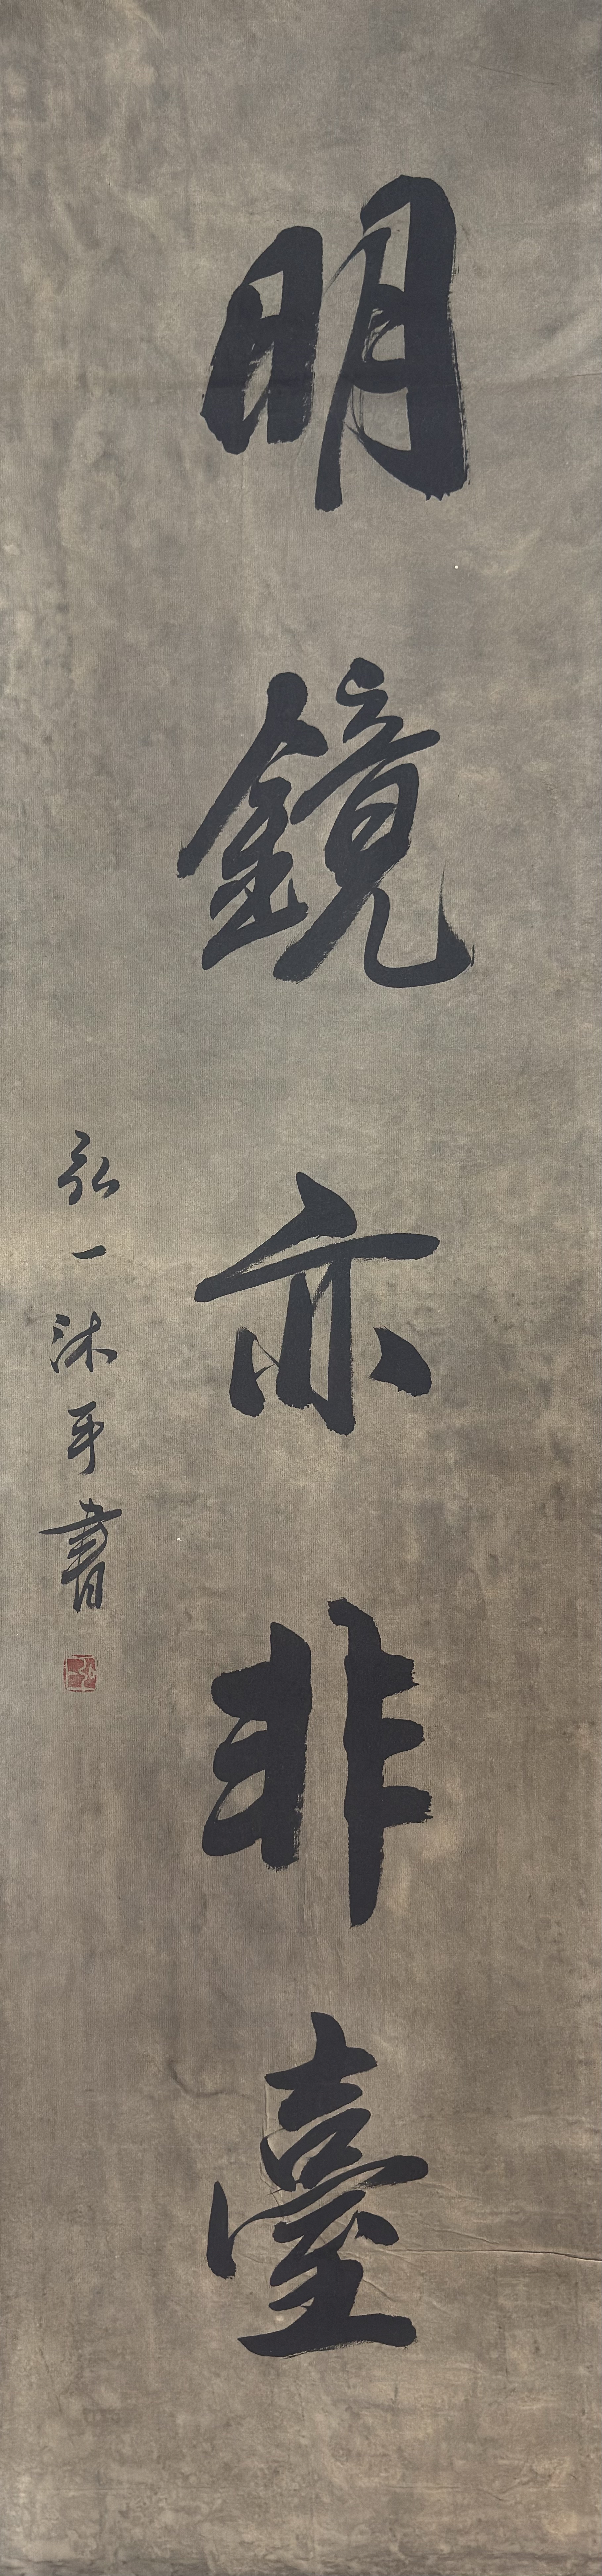 明鏡亦非臺
弘一沐手書
弘一